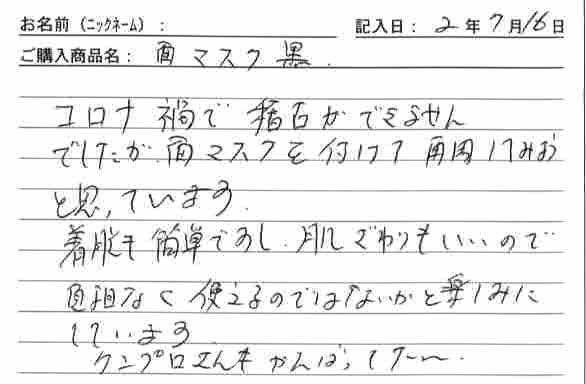 お名前（ニックネーム）： 記入日： 2 年 7 月 16 日
ご購入商品名： 面マスク 黒.
コロナ禍で 稽古ができません
でしたが. 面マスクを付けて 再開してみよう
と思っています.
着脱も 簡単ですし. 肌ざわりもいいので
負担なく 使えるのではないかと 楽しみに
しています
ケンプロさんも がんばって